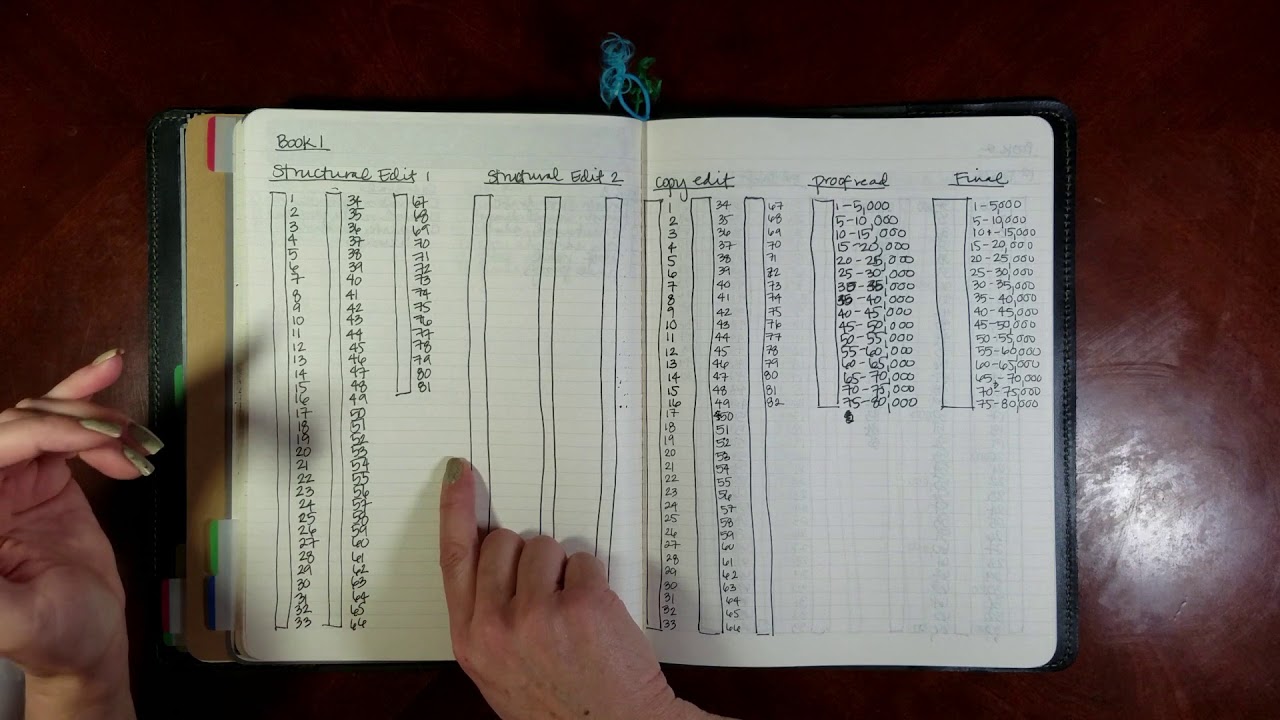 Book 1
Structural Edit 1
1
2
3
4
5
6
7
8
9
10
11
12
13
14
15
16
17
18
19
20
21
22
23
24
25
26
27
28
29
30
31
32
33
34
35
36
37
38
39
40
41
42
43
44
45
46
47
48
49
50
51
52
53
54
55
56
57
58
59
60
61
62
63
64
65
66
67
68
69
70
71
72
73
74
75
76
77
78
79
80
81
Structural Edit 2
Copy edit
1
2
3
4
5
6
7
8
9
10
11
12
13
14
15
16
17
18
19
20
21
22
23
24
25
26
27
28
29
30
31
32
33
34
35
36
37
38
39
40
41
42
43
44
45
46
47
48
49
50
51
52
53
54
55
56
57
58
59
60
61
62
63
64
65
66
67
68
69
70
71
72
73
74
75
76
77
78
79
80
81
82
Proofread
1-5,000
5-10,000
10-15,000
15-20,000
20-25,000
25-30,000
30-35,000
35-40,000
40-45,000
45-50,000
50-55,000
55-60,000
60-65,000
65-70,000
70-75,000
75-80,000
Final
1-5,000
5-10,000
10-15,000
15-20,000
20-25,000
25-30,000
30-35,000
35-40,000
40-45,000
45-50,000
50-55,000
55-60,000
60-65,000
65-70,000
70-75,000
75-80,000